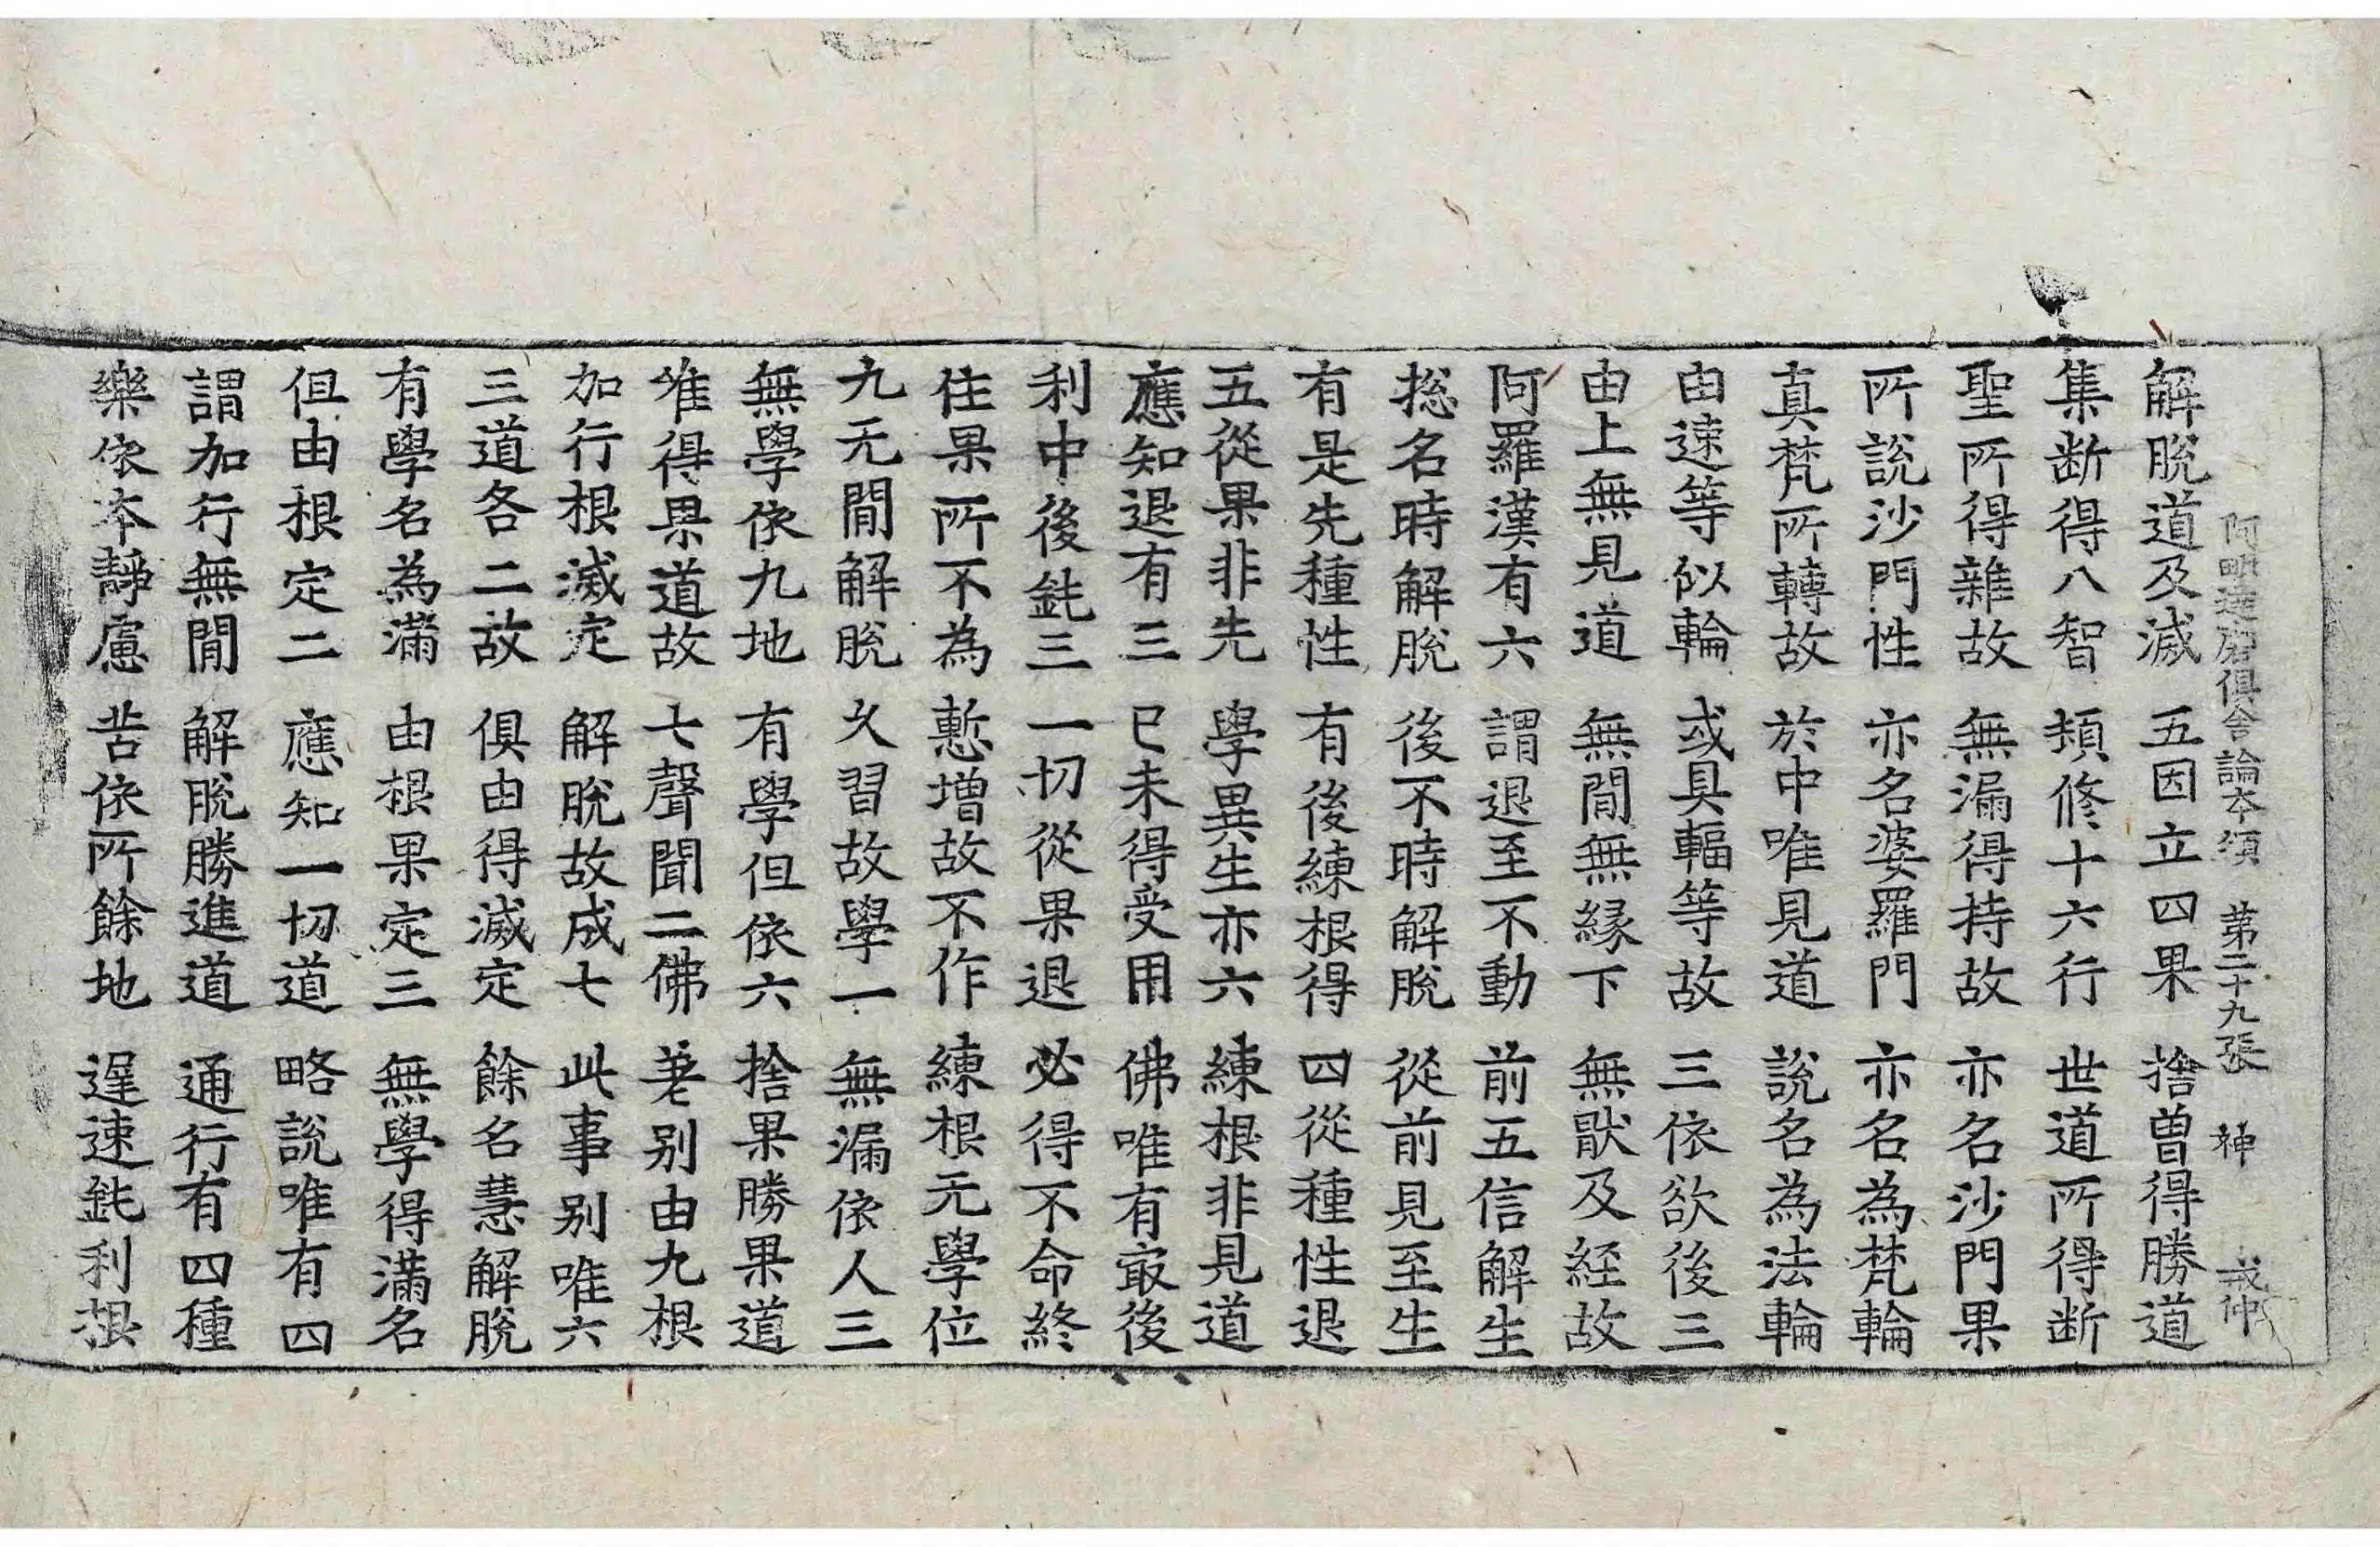 阿毗達磨俱舍論本頌 第二十九張 神 戒仲
解脫道及滅 五因立四果 捨曾得勝道
集断得八智 頓修十六行 世道所得断
聖所得雜故 無漏得持故 亦名沙門果
所說沙門性 亦名婆羅門 亦名為梵輪
真梵所轉故 於中唯見道 說名為法輪
由速等似輪 或具輻等故 三依欲後三
由上無見道 無間無緣下 無猒及経故
阿羅漢有六 謂退至不動 前五信解生
揔名時解脫 後不時解脫 從前見至生
有是先種性 有後練根得 四從種性退
五從果非先 學異生亦六 練根非見道
應知退有三 已未得受用 佛唯有㝡後
利中後鈍三 一切從果退 必得不命終
住果所不為 慙增故不作 練根无學位
九无間解脫 久習故學一 無漏依人三
無學依九地 有學但依六 捨果勝果道
唯得果道故 七聲聞二佛 差别由九根
加行根滅定 解脫故成七 此事别唯六
三道各二故 俱由得滅定 餘名慧解脫
有學名為滿 由根果定三 無學得滿名
但由根定二 應知一切道 略說唯有四
謂加行無間 解脫勝進道 通行有四種
樂依本靜慮 苦依所餘地 遲速鈍利根